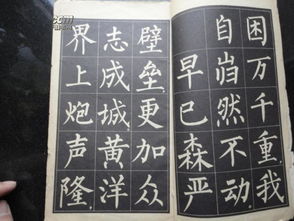 困万千重我
自岿然不动
早已森严
壁垒更加众
志成城黄洋
界上炮声隆